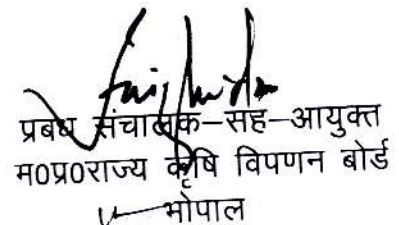 प्रबंध संचालक–सह–आयुक्त
म0प्र0राज्य कृषि विपणन बोर्ड
भोपाल